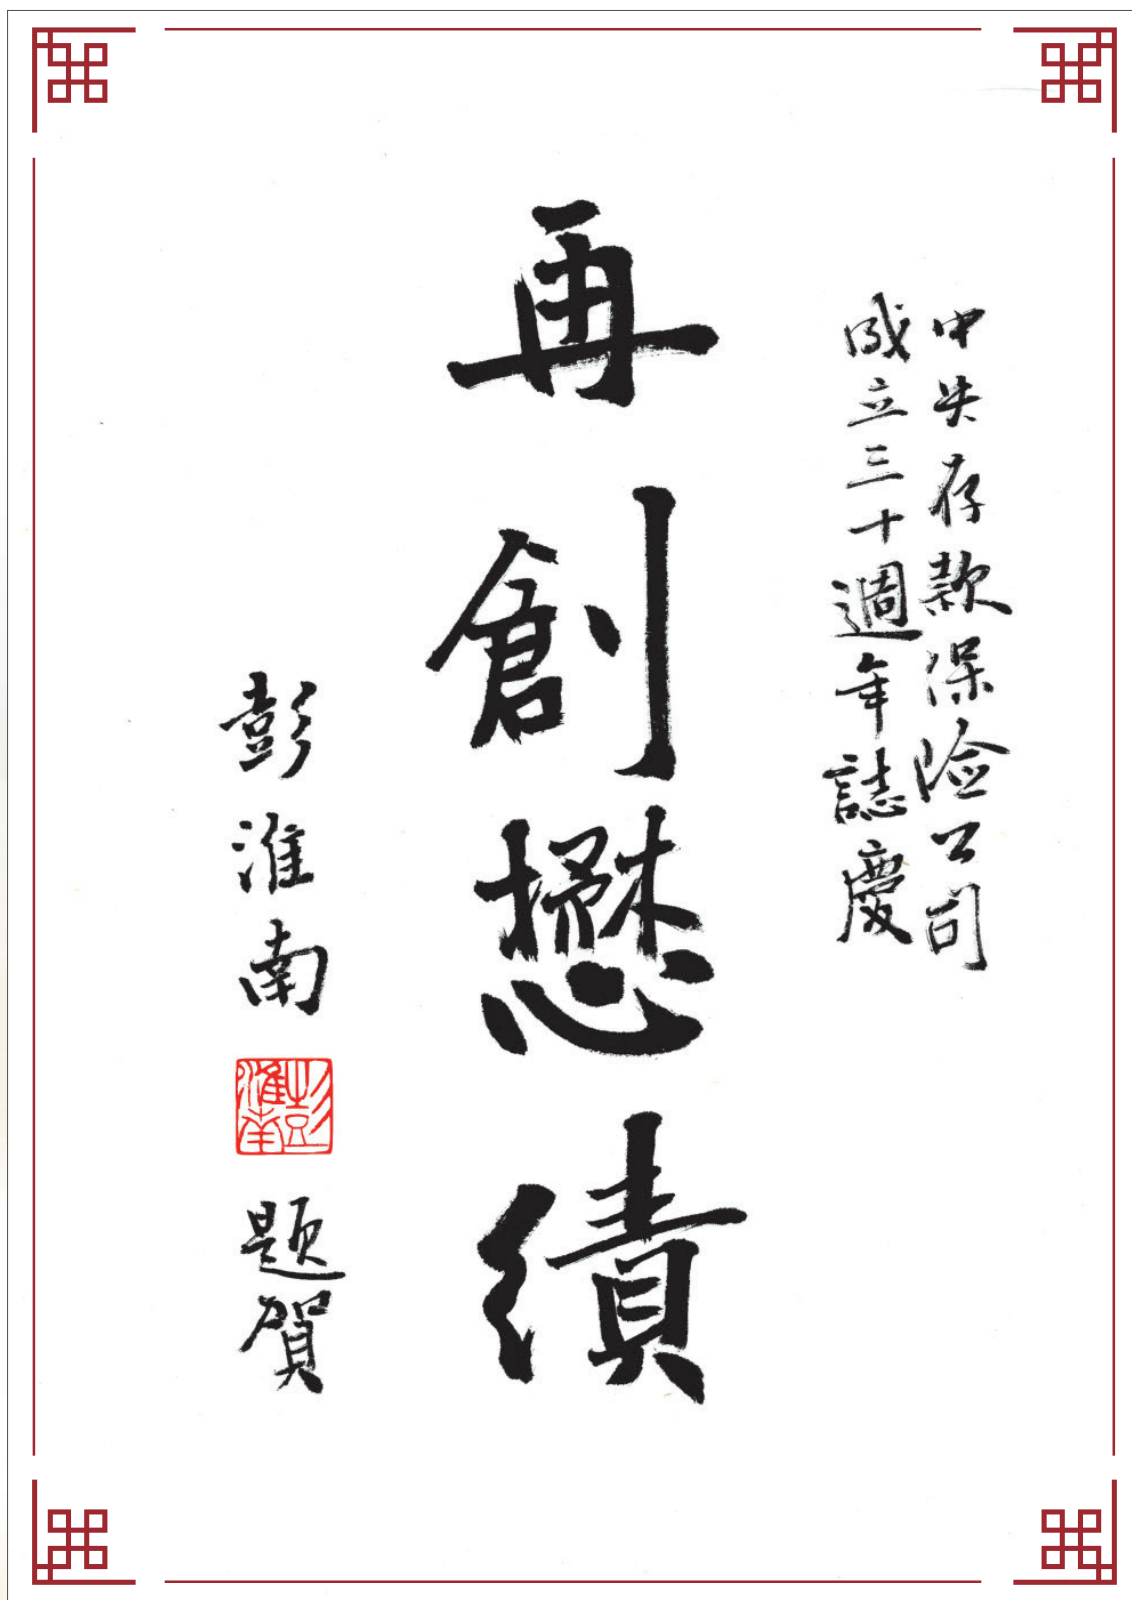 中央存款保险公司
成立三十週年誌慶
再創懋績
彭淮南
彭淮南
题賀